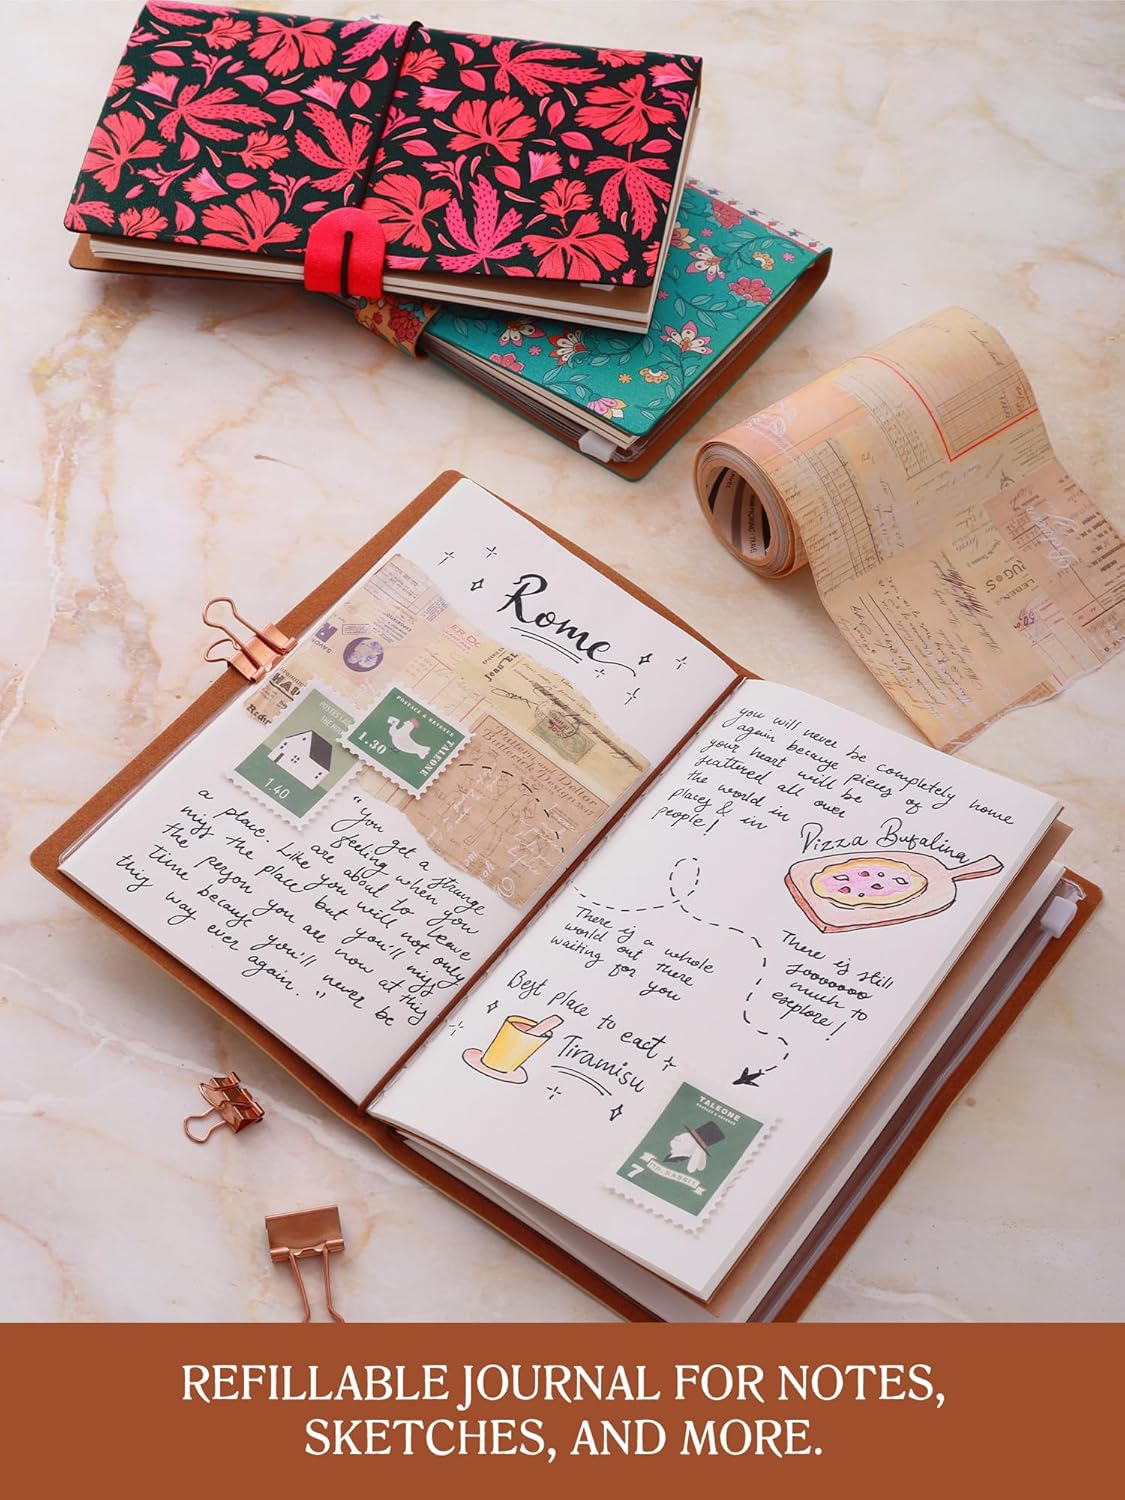 Rome
POSTAGE & REVENUE
1.30
TALEONE
1.40
"You get a strange
feeling when you
are about to leave
a place. Like you will not only
miss the place but you'll miss
the person you are now at this
time because you'll never be
this way ever
again."
you will never be completely home
again because pieces of
your heart will be
scattered all over
the world in
places & in
people!
Pizza Bufalina
There is a whole
world out there
waiting for you
There is still
soooooooo
much to
explore!
Best place to eat
Tiramisu
TALEONE
POSTAGE & REVENUE
7
MR. RABBIT
REFILLABLE JOURNAL FOR NOTES,
SKETCHES, AND MORE.